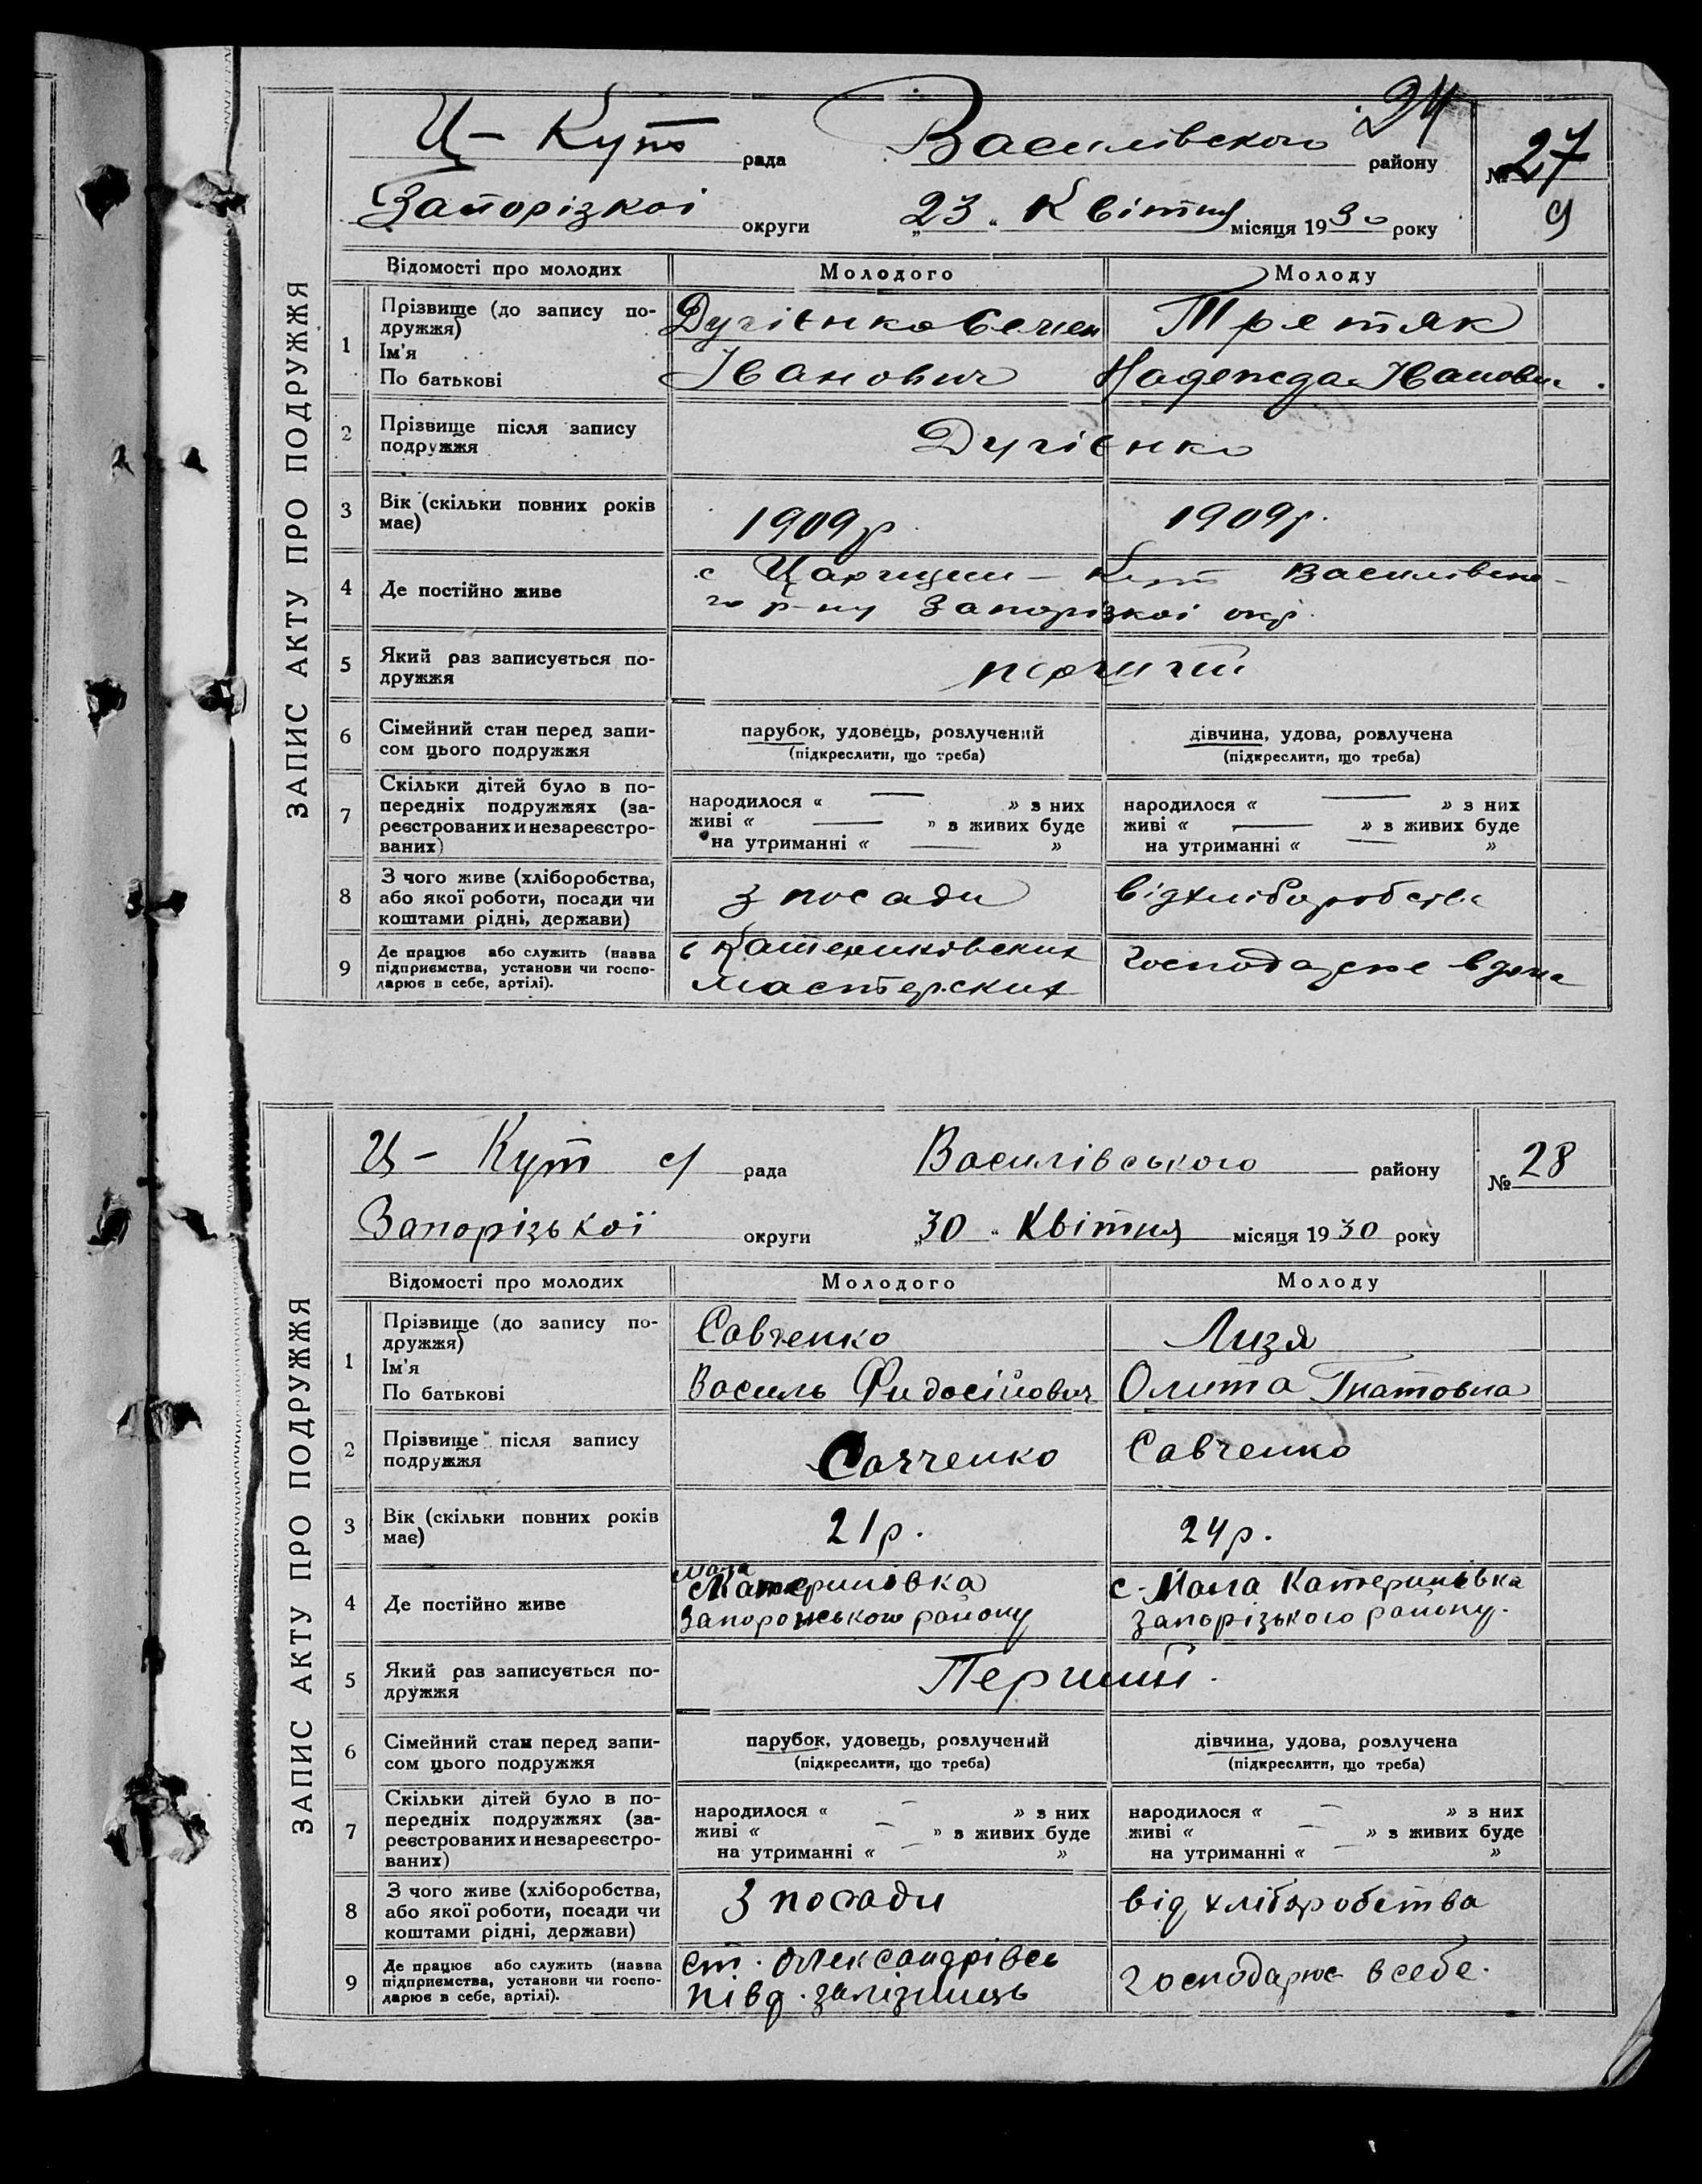 24
Ц- Кут рада Василівского району
№ 27
Запорізкоі округи „23“ Квітня місяця 1930 року
9
ЗАПИС АКТУ ПРО ПОДРУЖЖЯ
Відомості про молодих Молодого Молоду
1 Прізвище (до запису по-
дружжя)
Ім'я
По батькові
Дугієнко Семен Третяк
Іванович Надежда Іванович.
2 Прізвище після запису
подружжя
Дугієнко
3 Вік (скільки повних років
має)
1909р. 1909р.
4 Де постійно живе
с Царицин-Кут Василівско-
го р-ну Запорізкоі окр.
5 Який раз записується по-
дружжя
перший
6 Сімейний стан перед запи-
сом цього подружжя
парубок, удовець, розлучений
(підкреслити, що треба)
дівчина, удова, розлучена
(підкреслити, що треба)
7 Скільки дітей було в по-
передніх подружжях (за-
реєстрованих и незареєстро-
ваних)
народилося « — » з них
живі « — » з живих буде
на утриманні « — »
народилося « — » з них
живі « — » з живих буде
на утриманні « — »
8 З чого живе (хліборобства,
або якої роботи, посади чи
коштами рідні, держави)
з посади
від хліборобства
9 Де працює або служить (назва
підприємства, установи чи госпо-
дарює в себе, артілі).
в
мастерских
господарює вдома
Ц- Кут с/ рада Василівського району
№ 28
Запорізької округи „30“ Квітня місяця 1930 року
ЗАПИС АКТУ ПРО ПОДРУЖЖЯ
Відомості про молодих Молодого Молоду
1 Прізвище (до запису по-
дружжя)
Ім'я
По батькові
Савченко Лизя
Василь Фидосійович Олита Гнатовна
2 Прізвище після запису
подружжя
Савченко Савченко
3 Вік (скільки повних років
має)
21р. 24р.
4 Де постійно живе
мала
Катеринівка
Запорожського району
с. Мала Катеринівка
Запорізького району.
5 Який раз записується по-
дружжя
Перший.
6 Сімейний стан перед запи-
сом цього подружжя
парубок, удовець, розлучений
(підкреслити, що треба)
дівчина, удова, розлучена
(підкреслити, що треба)
7 Скільки дітей було в по-
передніх подружжях (за-
реєстрованих и незареєстро-
ваних)
народилося « — » з них
живі « — » з живих буде
на утриманні « — »
народилося « — » з них
живі « — » з живих буде
на утриманні « — »
8 З чого живе (хліборобства,
або якої роботи, посади чи
коштами рідні, держави)
З посади
від хліборобства
9 Де працює або служить (назва
підприємства, установи чи госпо-
дарює в себе, артілі).
ст. Олександрівсь
півд. залізниць
господарює в себе.